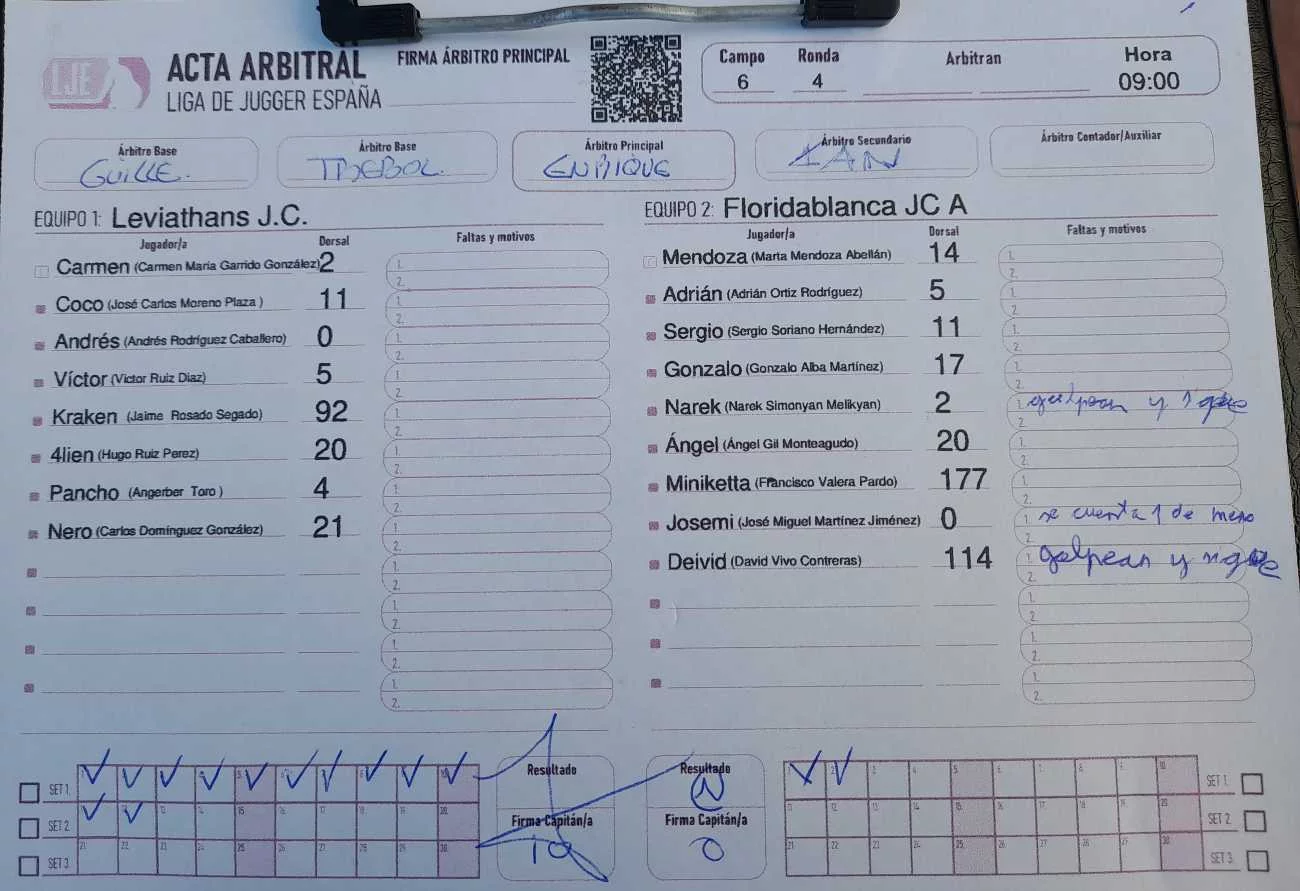 LJE
ACTA ARBITRAL
LIGA DE JUGGER ESPAÑA
FIRMA ÁRBITRO PRINCIPAL
Campo Ronda Arbitran Hora
6 4 09:00
Árbitro Base Árbitro Base Árbitro Principal Árbitro Secundario Árbitro Contador/Auxiliar
GUILLE. TREBOL. ENRIQUE IAN
EQUIPO 1: Leviathans J.C.
Jugador/a Dorsal Faltas y motivos
Carmen (Carmen María Garrido González) 2 1. 2.
Coco (José Carlos Moreno Plaza ) 11 1. 2.
Andrés (Andrés Rodríguez Caballero) 0 1. 2.
Víctor (Victor Ruiz Diaz) 5 1. 2.
Kraken (Jaime Rosado Segado) 92 1. 2.
4lien (Hugo Ruiz Perez) 20 1. 2.
Pancho (Angerber Toro ) 4 1. 2.
Nero (Carlos Domínguez González) 21 1. 2.
1. 2.
1. 2.
1. 2.
1. 2.
EQUIPO 2: Floridablanca JC A
Jugador/a Dorsal Faltas y motivos
Mendoza (Marta Mendoza Abellán) 14 1. 2.
Adrián (Adrián Ortiz Rodríguez) 5 1. 2.
Sergio (Sergio Soriano Hernández) 11 1. 2.
Gonzalo (Gonzalo Alba Martínez) 17 1. 2.
Narek (Narek Simonyan Melikyan) 2 1. y 2.
Ángel (Ángel Gil Monteagudo) 20 1. 2.
Miniketta (Francisco Valera Pardo) 177 1. 2.
Josemi (José Miguel Martínez Jiménez) 0 1. se cuenta 1 de meno 2.
Deivid (David Vivo Contreras) 114 1. golpean y sigue 2.
1. 2.
1. 2.
1. 2.
SET 1. 1 2 3 4 5 6 7 8 9 10
SET 2. 11 12 13 14 15 16 17 18 19 20
SET 3. 21 22 23 24 25 26 27 28 29 30
Resultado
Firma Capitán/a
10
Resultado
2
Firma Capitán/a
0
1 2 3 4 5 6 7 8 9 10 SET 1.
11 12 13 14 15 16 17 18 19 20 SET 2.
21 22 23 24 25 26 27 28 29 30 SET 3.